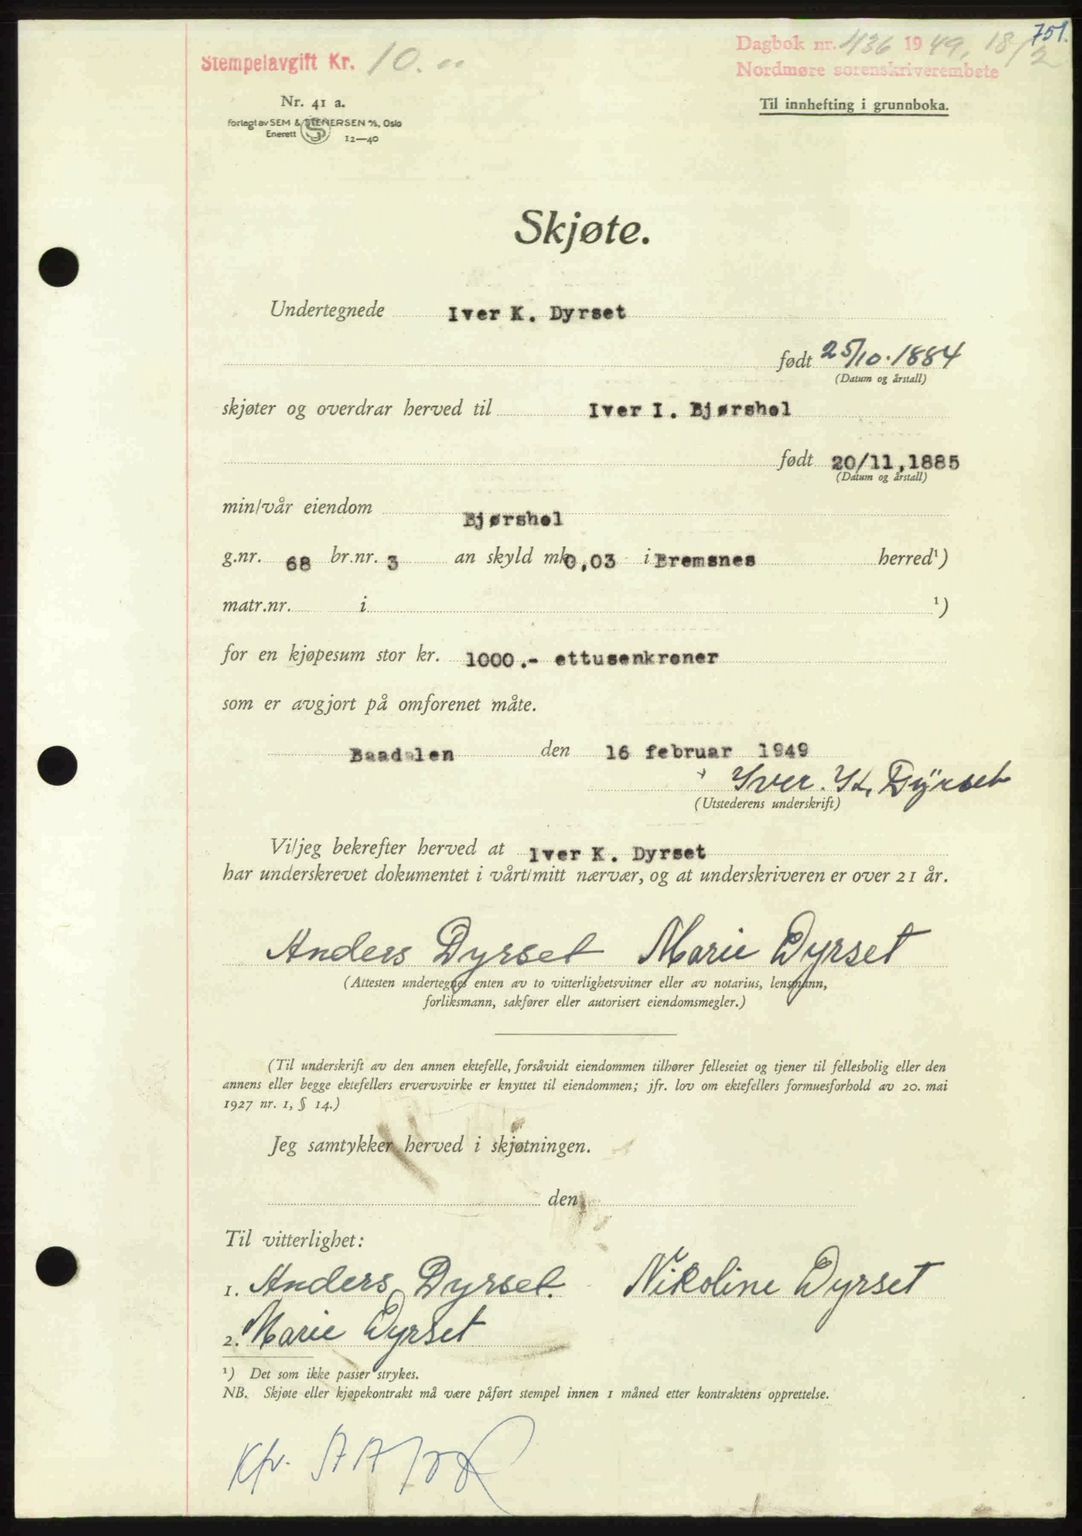 751.
Stempelavgift Kr. 10.
Dagbok nr. 436 1949, 18/2
Nordmøre sorenskriverembete
Nr. 41 a.
Til innhefting i grunnboka.
Forlagt av SEM & STENERSEN A/S, Oslo
Enerett 12—40
Skjøte.
Undertegnede Iver K. Dyrset
født 25/10.1884
(Datum og årstall)
skjøter og overdrar herved til Iver I. Bjørshol
født 20/11,1885
(Datum og årstall)
min/vår eiendom Bjørshol
g.nr. 68 br.nr. 3 an skyld mk 0,03 i Bremsnes herred¹)
matr.nr. i ¹)
for en kjøpesum stor kr. 1000.- ettusenkroner
som er avgjort på omforenet måte.
Baadalen den 16 februar 1949
Iver. K. Dyrset
(Utstederens underskrift)
Vi/jeg bekrefter herved at Iver K. Dyrset
har underskrevet dokumentet i vårt/mitt nærvær, og at underskriveren er over 21 år.
Anders Dyrset Marie Dyrset
(Attesten undertegnes enten av to vitterlighetsvitner eller av notarius, lensmann,
forliksmann, sakfører eller autorisert eiendomsmegler.)
(Til underskrift av den annen ektefelle, forsåvidt eiendommen tilhører felleseiet og tjener til fellesbolig eller den
annens eller begge ektefellers ervervsvirke er knyttet til eiendommen; jfr. lov om ektefellers formuesforhold av 20. mai
1927 nr. 1, § 14.)
Jeg samtykker herved i skjøtningen.
den
Til vitterlighet:
1. Anders Dyrset. Nikoline Dyrset
2. Marie Dyrset
¹) Det som ikke passer strykes.
NB. Skjøte eller kjøpekontrakt må være påført stempel innen 1 måned etter kontraktens opprettelse.